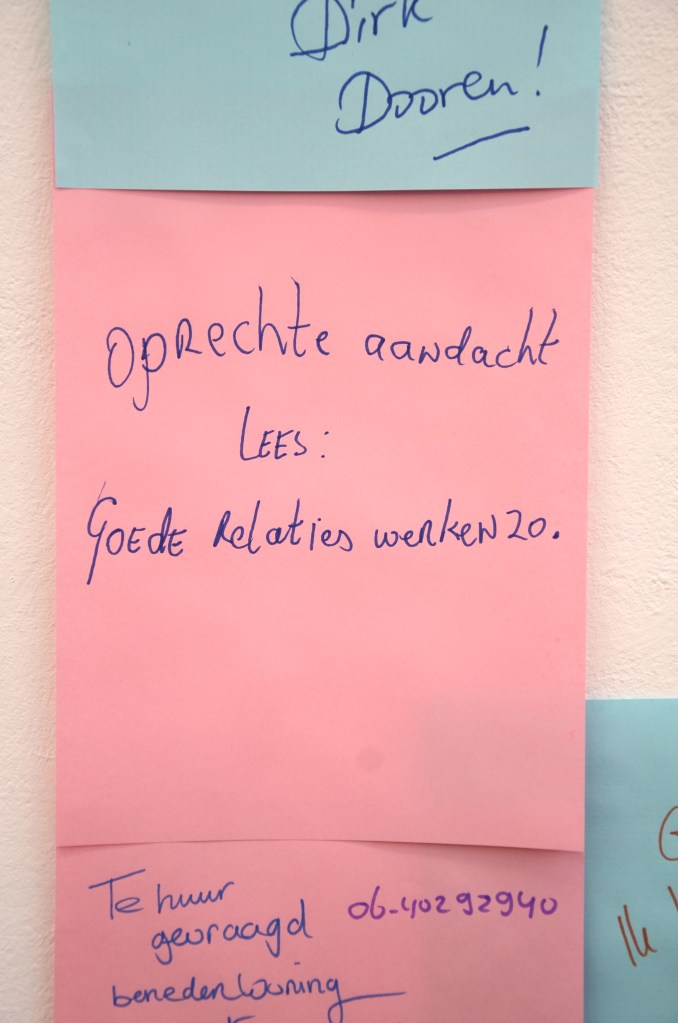 Dirk
Dooren!
Oprechte aandacht
Lees:
Goede relaties werken zo.
Te huur
gevraagd
06-40292940
benedenwoning
Ik